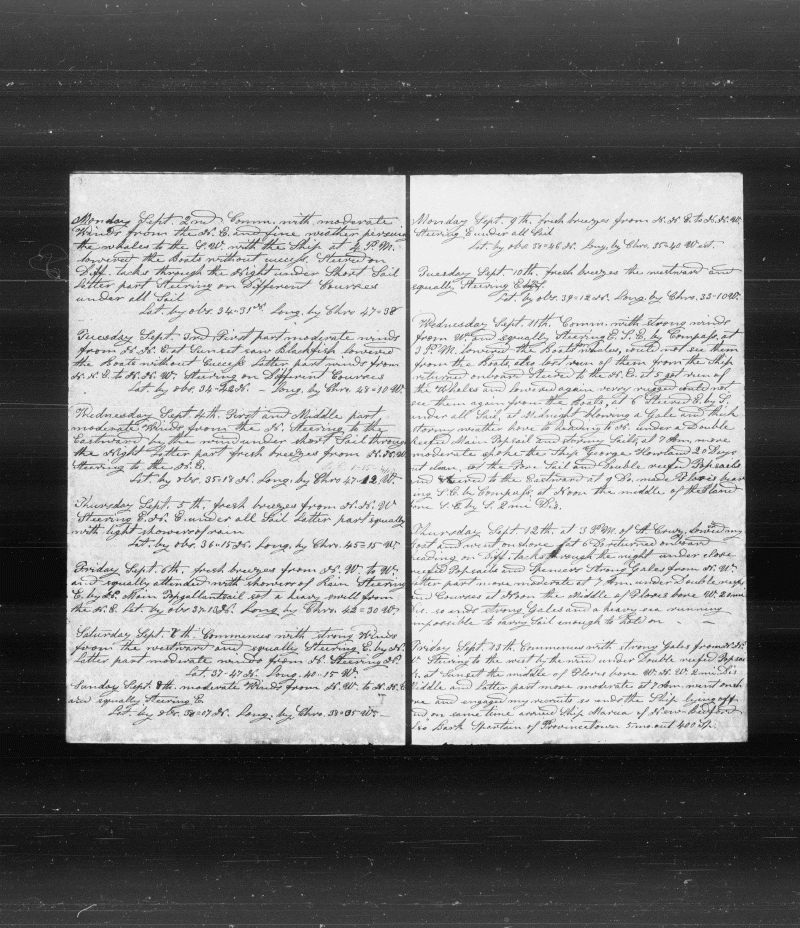 Monday Sept. 2nd Comm. with moderate
Winds from the N. E. and fine weather persuing
the whales to the S. W. with the Ship at 4 P. M.
lowered the Boats without success. Steered on
Diff. tacks through the Night under Short Sail
latter part Steering on Different Courses
under all Sail
Lat. by obs. 34=31 N. Long. by Chro 47=38
Tuesday Sept. 3rd First part moderate winds
from N. N. E. at Sunset saw Blackfish lowered
the Boats without Success Latter part winds from
N. N. E. to N. N. W. Steering on Different Courses
Lat. by obs. 34=42 N. Long. by Chro. 48=10 W.
Wednesday Sept 4th First and Middle part
moderate Winds from the N. Steering to the
Eastward by the wind under short Sail through
the Night Latter part fresh breezes from N. N. W.
Steering to the N. E.
Lat. by obs. 35=18 N. Long. by Chro 47=12 W.
Thursday Sept. 5th, fresh breezes from N. N. W
Steering E. N. E. under all Sail Latter part squally
with light showers of rain
Lat. by obs. 36=15 N. Long. by Chro. 45=15 W.
Friday Sept. 6th, fresh breezes from N. W. to W.
and squally attended with showers of Rain Steering
E. by N. Main Topgallantsail set a heavy swell from
the N. E. Lat by obs. 37=13 N. Long by Chro. 42=30 W.
Saturday Sept. 7th Commences with strong Winds
from the westward and squally Steering E. by N.
Latter part moderate winds from N. Steering
Lat 37-47 N. Long. 40-15 W.
Sunday Sept. 8th. moderate Winds from N. W. to N. N. E
and squally Steering E.
Lat. by obs. 38=07 N. Long. by Chro. 38=35 W.
Monday Sept. 9th, fresh breezes from N. N. E. to N. N. W.
Steering E under all Sail
Lat. by obs. 38=46 N. Long. by Chro. 35=40 W
Tuesday Sept. 10th. fresh breezes the westward and
squally Steering E by S
Lat. by obs. 39=12 N. Long. by Chro. 33=10 W.
Wednesday Sept. 11th. Comm. with strong winds
from W. and squally Steering E. S. E. by Compass, at
3 P. M. lowered the Boats for whales, could not see them
from the Boats also lost run of them from the Ship
returned onboard Steered to the N. E. at 5 got run of
the Whales and lowered again very rugged could not
see them again from the Boats, at 6 Steered E. by S.
under all Sail, at Midnight blowing a Gale and thick
stormy weather hove to heading to N. under a Double
reefed Main Topsail and storm Sails, at 7 A.m. more
moderate spoke the Ship George Howland 20 Days
out clean, set the Fore Sail and Double reefed Topsails
and steered to the Eastward at 9 Do. made Flores bear
ing S. E. by Compass, at Noon the middle of the Island
bore S. E. by S. 2 mi Dis.
Thursday Sept. 12th. at 3 P. M. of St. Cruz, lowered my
boat and went on shore, at 6 Do. returned on board
heading on Diff. tacks through the night under close
reefed Topsails and Spencers Strong Gales from N. W.
latter part more moderate at 7 Am. under Double reefs
and Courses at Noon the Middle of Flores bore W. 2 mi
Dis. so ends strong Gales and a heavy sea running
impossible to carry Sail enough to hold on
Friday Sept. 13th. Commences with strong Gales from N. N.
W. Steering to the west by the wind under Double reefed Topsai
ls. at Sunset the middle of Flores bore W. N. W. 2 mi Dis
Middle and Latter part more moderate at 7 Am. went on sh
ore and engaged my recruits so ends the Ship lying off
and on same time arrived Ship Maria of New Bedford
also Bark Spartan of Provincetown 5 mo. out 400 Sp.